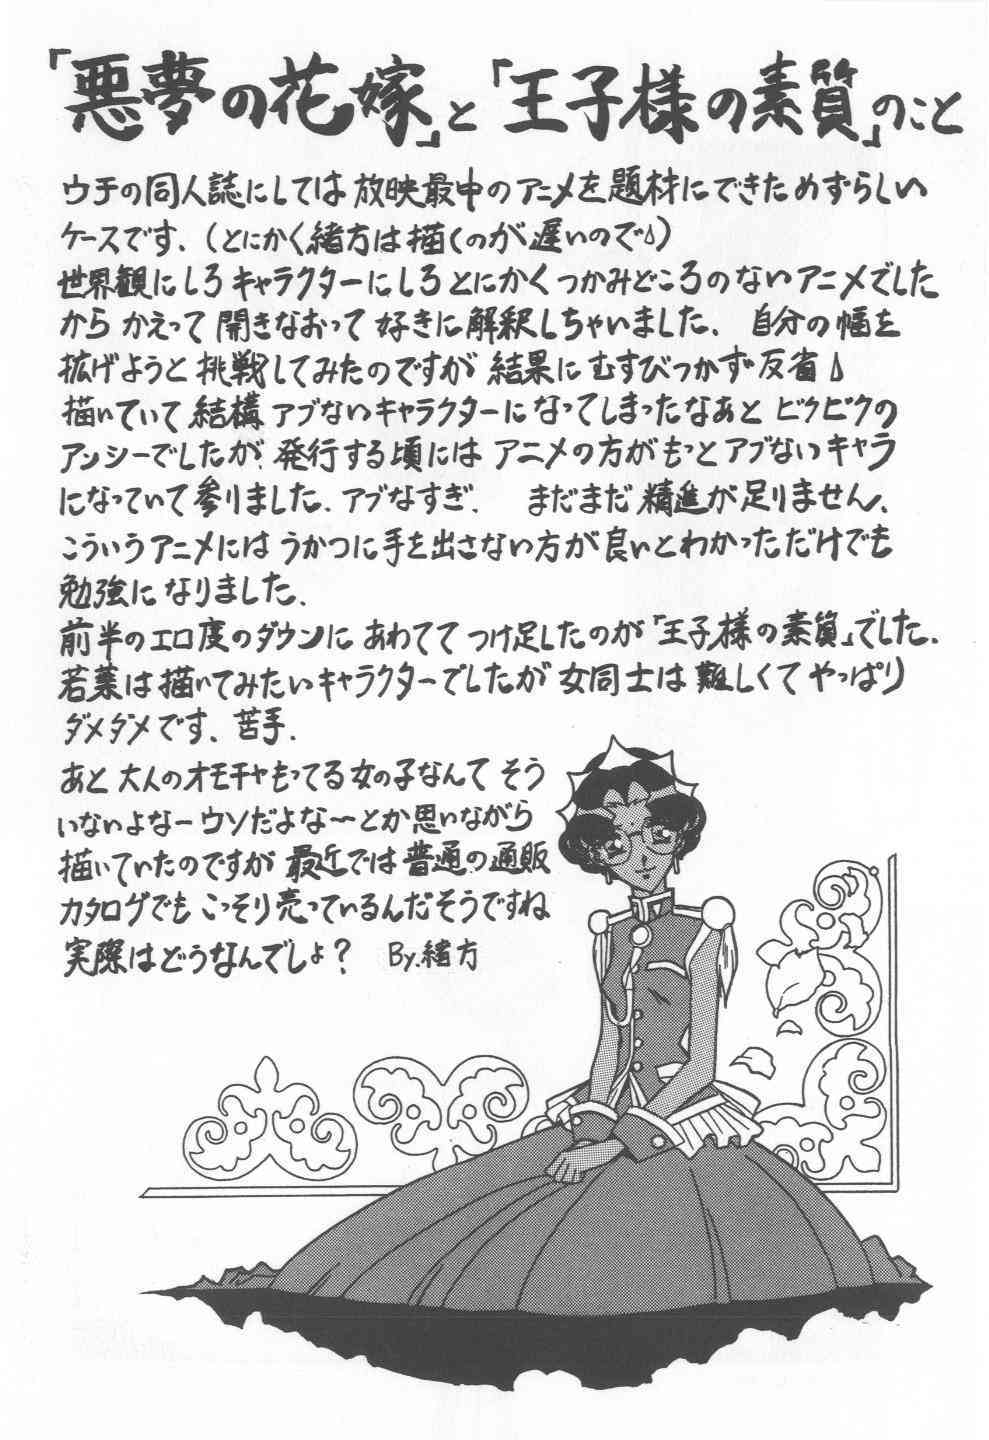 「悪夢の花嫁」と「王子様の素質」のこと
ウチの同人誌にしては放映最中のアニメを題材にできためずらしい
ケースです、(とにかく緒方は描くのが遅いので)
世界観にしろキャラクターにしろとにかくつかみどころのないアニメでした
からかえって開きなおって好きに解釈しちゃいました、自分の幅を
拡げようと挑戦してみたのですが結果にむすびつかず反省
描いていて結構アブないキャラクターになってしまったなあとビクビクの
アンシーでしたが、発行する頃にはアニメの方がもっとアブないキャラ
になっていて参りました、アブなすぎ、まだまだ精進が足りません、
こういうアニメにはうかつに手を出さない方が良いとわかっただけでも
勉強になりました、
前半のエロ度のダウンにあわててつけ足したのが「王子様の素質」でした、
若葉は描いてみたいキャラクターでしたが女同士は難しくてやっぱり
ダメダメです、苦手、
あと大人のオモチャもってる女の子なんてそう
いないよなーウソだよな〜とか思いながら
描いていたのですが最近では普通の通販
カタログでもこっそり売っているんだそうですね
実際はどうなんでしょ? By.緒方